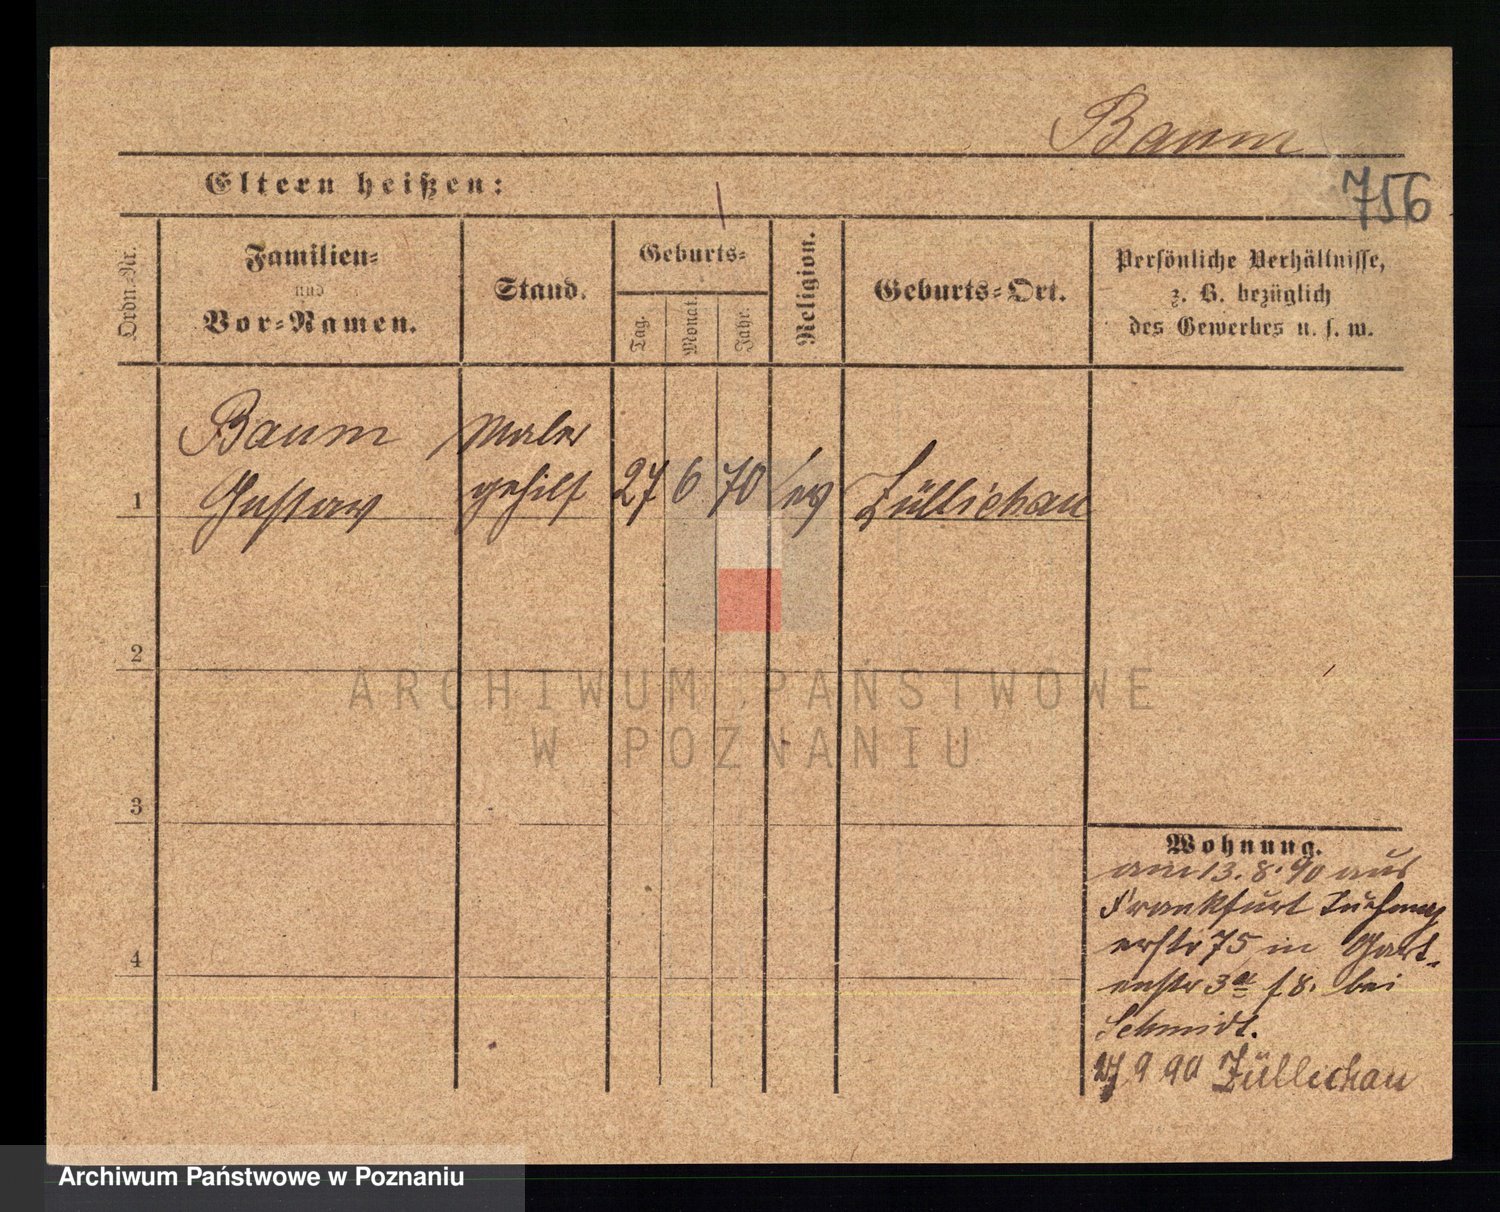 Baum
Eltern heißen:
756
Ordn.-Nr.
Familien-
und
Vor-Namen.
Stand.
Geburts-
Tag.
Monat.
Jahr.
Religion.
Geburts-Ort.
Persönliche Verhältnisse,
z. B. bezüglich
des Gewerbes u. s. w.
Baum Maler
1 Gustav gehilf 27 6 70 ev Züllichau
2
ARCHIWUM PAŃSTWOWE
W POZNANIU
3
Wohnung.
am 13. 8. 90 aus
Frankfurt Tuchmach
erstr 75 in Gart-
enstr 3a bei
Schmidt.
4
27 9 90 Züllichau
Archiwum Państwowe w Poznaniu